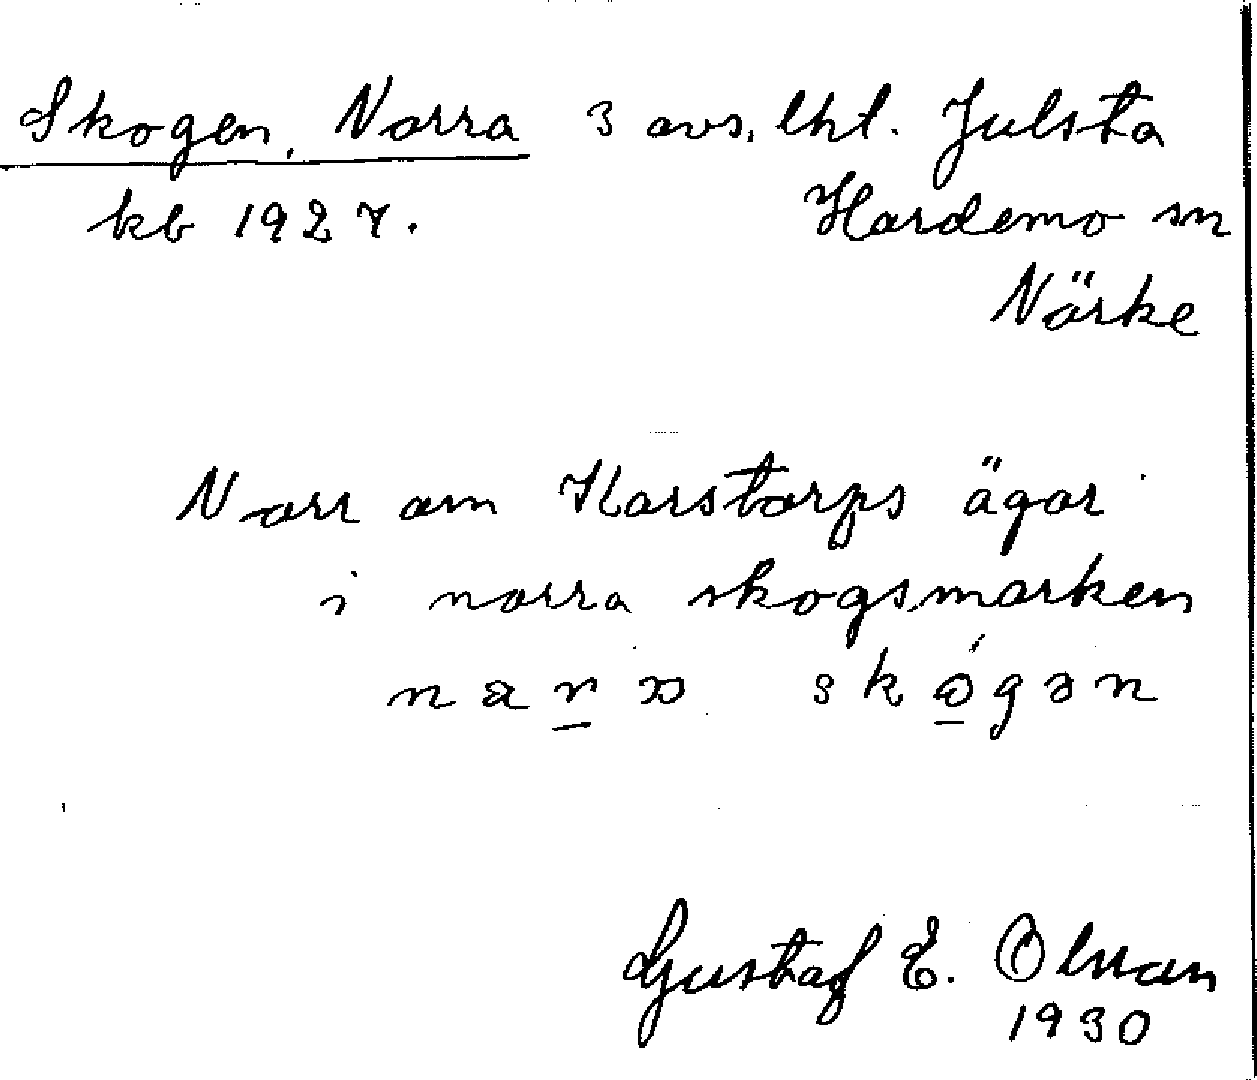 Skogen, Norra 3 avs, lht. Julsta
kb 1927. Hardemo sn
Närke
Norr om Karstorps ägor
i norra skogsmarken
Gustaf E. Olsson
1930